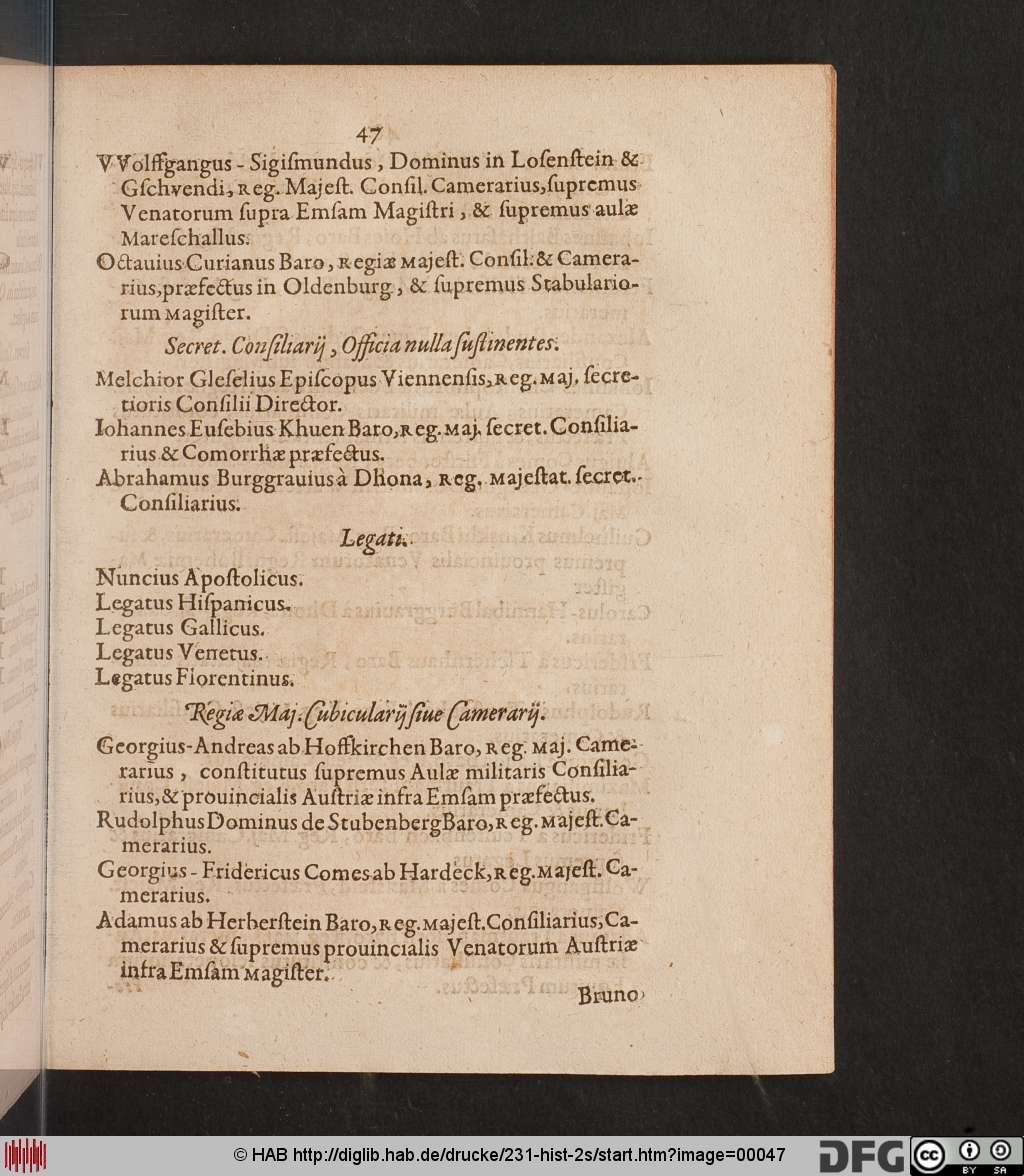 47
VVolffgangus - Sigiſmundus, Dominus in Loſenſtein &
Gſchvendi, Reg. Majeſt. Conſil. Camerarius, ſupremus
Venatorum ſupra Emſam Magiſtri, & ſupremus aulæ
Mareſchallus.
Octauius Curianus Baro, Regiæ Majeſt. Conſil. & Camera-
rius, præfectus in Oldenburg, & ſupremus Stabulario-
rum Magiſter.
Secret. Conſiliarij, Officia nulla ſuſtinentes.
Melchior Gleſelius Epiſcopus Viennenſis, Reg. Maj. ſecre-
tioris Conſilii Director.
Iohannes Euſebius Khuen Baro, Reg. Maj. ſecret. Conſilia-
rius & Comorrhæ præfectus.
Abrahamus Burggrauius à Dhona, Reg. Majeſtat. ſecret.
Conſiliarius.
Legati.
Nuncius Apoſtolicus.
Legatus Hiſpanicus.
Legatus Gallicus.
Legatus Venetus.
Legatus Florentinus.
Regiæ Maj. Cubicularij ſiue Camerarij.
Georgius-Andreas ab Hoffkirchen Baro, Reg. Maj. Came-
rarius, conſtitutus ſupremus Aulæ militaris Conſilia-
rius, & prouincialis Auſtriæ infra Emſam præfectus.
Rudolphus Dominus de Stubenberg Baro, Reg. Majeſt. Ca-
merarius.
Georgius - Fridericus Comes ab Hardeck, Reg. Majeſt. Ca-
merarius.
Adamus ab Herberſtein Baro, Reg. Majeſt. Conſiliarius, Ca-
merarius & ſupremus prouincialis Venatorum Auſtriæ
infra Emſam Magiſter.
Bruno
© HAB http://diglib.hab.de/drucke/231-hist-2s/start.htm?image=00047
DFG
cc
BY SA